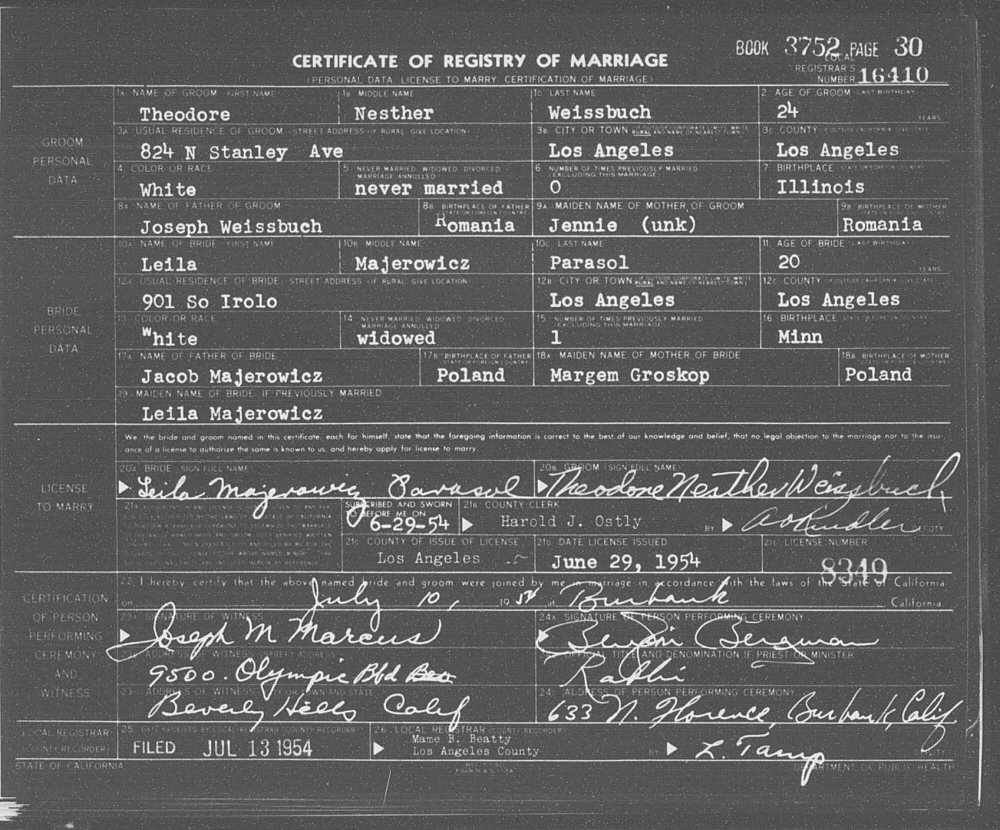 BOOK 3752 PAGE 30
CERTIFICATE OF REGISTRY OF MARRIAGE
LOCAL REGISTRAR'S NUMBER 16410
(PERSONAL DATA, LICENSE TO MARRY, CERTIFICATION OF MARRIAGE)
GROOM PERSONAL DATA
1A NAME OF GROOM - FIRST NAME 1B MIDDLE NAME 1C LAST NAME 2 AGE OF GROOM (LAST BIRTHDAY)
Theodore Nesther Weissbuch 24 YEARS
3A USUAL RESIDENCE OF GROOM - STREET ADDRESS (IF RURAL, GIVE LOCATION) 3B CITY OR TOWN 3C COUNTY
824 N Stanley Ave Los Angeles Los Angeles
4 COLOR OR RACE 5 NEVER MARRIED, WIDOWED, DIVORCED, MARRIAGE ANNULLED 6 NUMBER OF TIMES PREVIOUSLY MARRIED (EXCLUDING THIS MARRIAGE) 7 BIRTHPLACE
White never married 0 Illinois
8A NAME OF FATHER OF GROOM 8B BIRTHPLACE OF FATHER 9A MAIDEN NAME OF MOTHER OF GROOM 9B BIRTHPLACE OF MOTHER
Joseph Weissbuch Romania Jennie (unk) Romania
BRIDE PERSONAL DATA
10A NAME OF BRIDE - FIRST NAME 10B MIDDLE NAME 10C LAST NAME 11. AGE OF BRIDE (LAST BIRTHDAY)
Leila Majerowicz Parasol 20 YEARS
12A USUAL RESIDENCE OF BRIDE - STREET ADDRESS (IF RURAL, GIVE LOCATION) 12B CITY OR TOWN 12C COUNTY
901 So Irolo Los Angeles Los Angeles
13 COLOR OR RACE 14 NEVER MARRIED, WIDOWED, DIVORCED, MARRIAGE ANNULLED 15 NUMBER OF TIMES PREVIOUSLY MARRIED (EXCLUDING THIS MARRIAGE) 16 BIRTHPLACE
White widowed 1 Minn
17A NAME OF FATHER OF BRIDE 17B BIRTHPLACE OF FATHER 18A MAIDEN NAME OF MOTHER OF BRIDE 18B BIRTHPLACE OF MOTHER
Jacob Majerowicz Poland Margem Groskop Poland
19 MAIDEN NAME OF BRIDE, IF PREVIOUSLY MARRIED
Leila Majerowicz
LICENSE TO MARRY
We, the bride and groom named in this certificate, each for himself, state that the foregoing information is correct to the best of our knowledge and belief, that no legal objection to the marriage nor to the issu-
ance of a license to authorize the same is known to us, and hereby apply for license to marry.
20A BRIDE (SIGN FULL NAME) 20B GROOM (SIGN FULL NAME)
Leila Majerowicz Parasol Theodore Nesther Weissbuch
SUBSCRIBED AND SWORN TO BEFORE ME ON 21B COUNTY CLERK
6-29-54 Harold J. Ostly BY DEPUTY
21C COUNTY OF ISSUE OF LICENSE 21D. DATE LICENSE ISSUED 21E LICENSE NUMBER
Los Angeles June 29, 1954 8349
CERTIFICATION OF PERSON PERFORMING CEREMONY AND WITNESS
22 I hereby certify that the above named bride and groom were joined by me in marriage in accordance with the laws of the State of California
on July 10, 1954 at Burbank California
23A SIGNATURE OF WITNESS 24A SIGNATURE OF PERSON PERFORMING CEREMONY
Joseph M Marcus Bergman
ADDRESS OF WITNESS (STREET ADDRESS) OFFICIAL TITLE AND DENOMINATION IF PRIEST OR MINISTER
9500 Olympic Blvd Rabbi
ADDRESS OF WITNESS (CITY OR TOWN AND STATE) 24C ADDRESS OF PERSON PERFORMING CEREMONY
Beverly Hills Calif 633 N. Florence, Burbank, Calif
LOCAL REGISTRAR (COUNTY RECORDER)
25 DATE RECEIVED BY LOCAL REGISTRAR (COUNTY RECORDER) 26 LOCAL REGISTRAR (COUNTY RECORDER)
FILED JUL 13 1954 Mame B. Beatty
Los Angeles County BY DEPUTY
STATE OF CALIFORNIA DEPARTMENT OF PUBLIC HEALTH